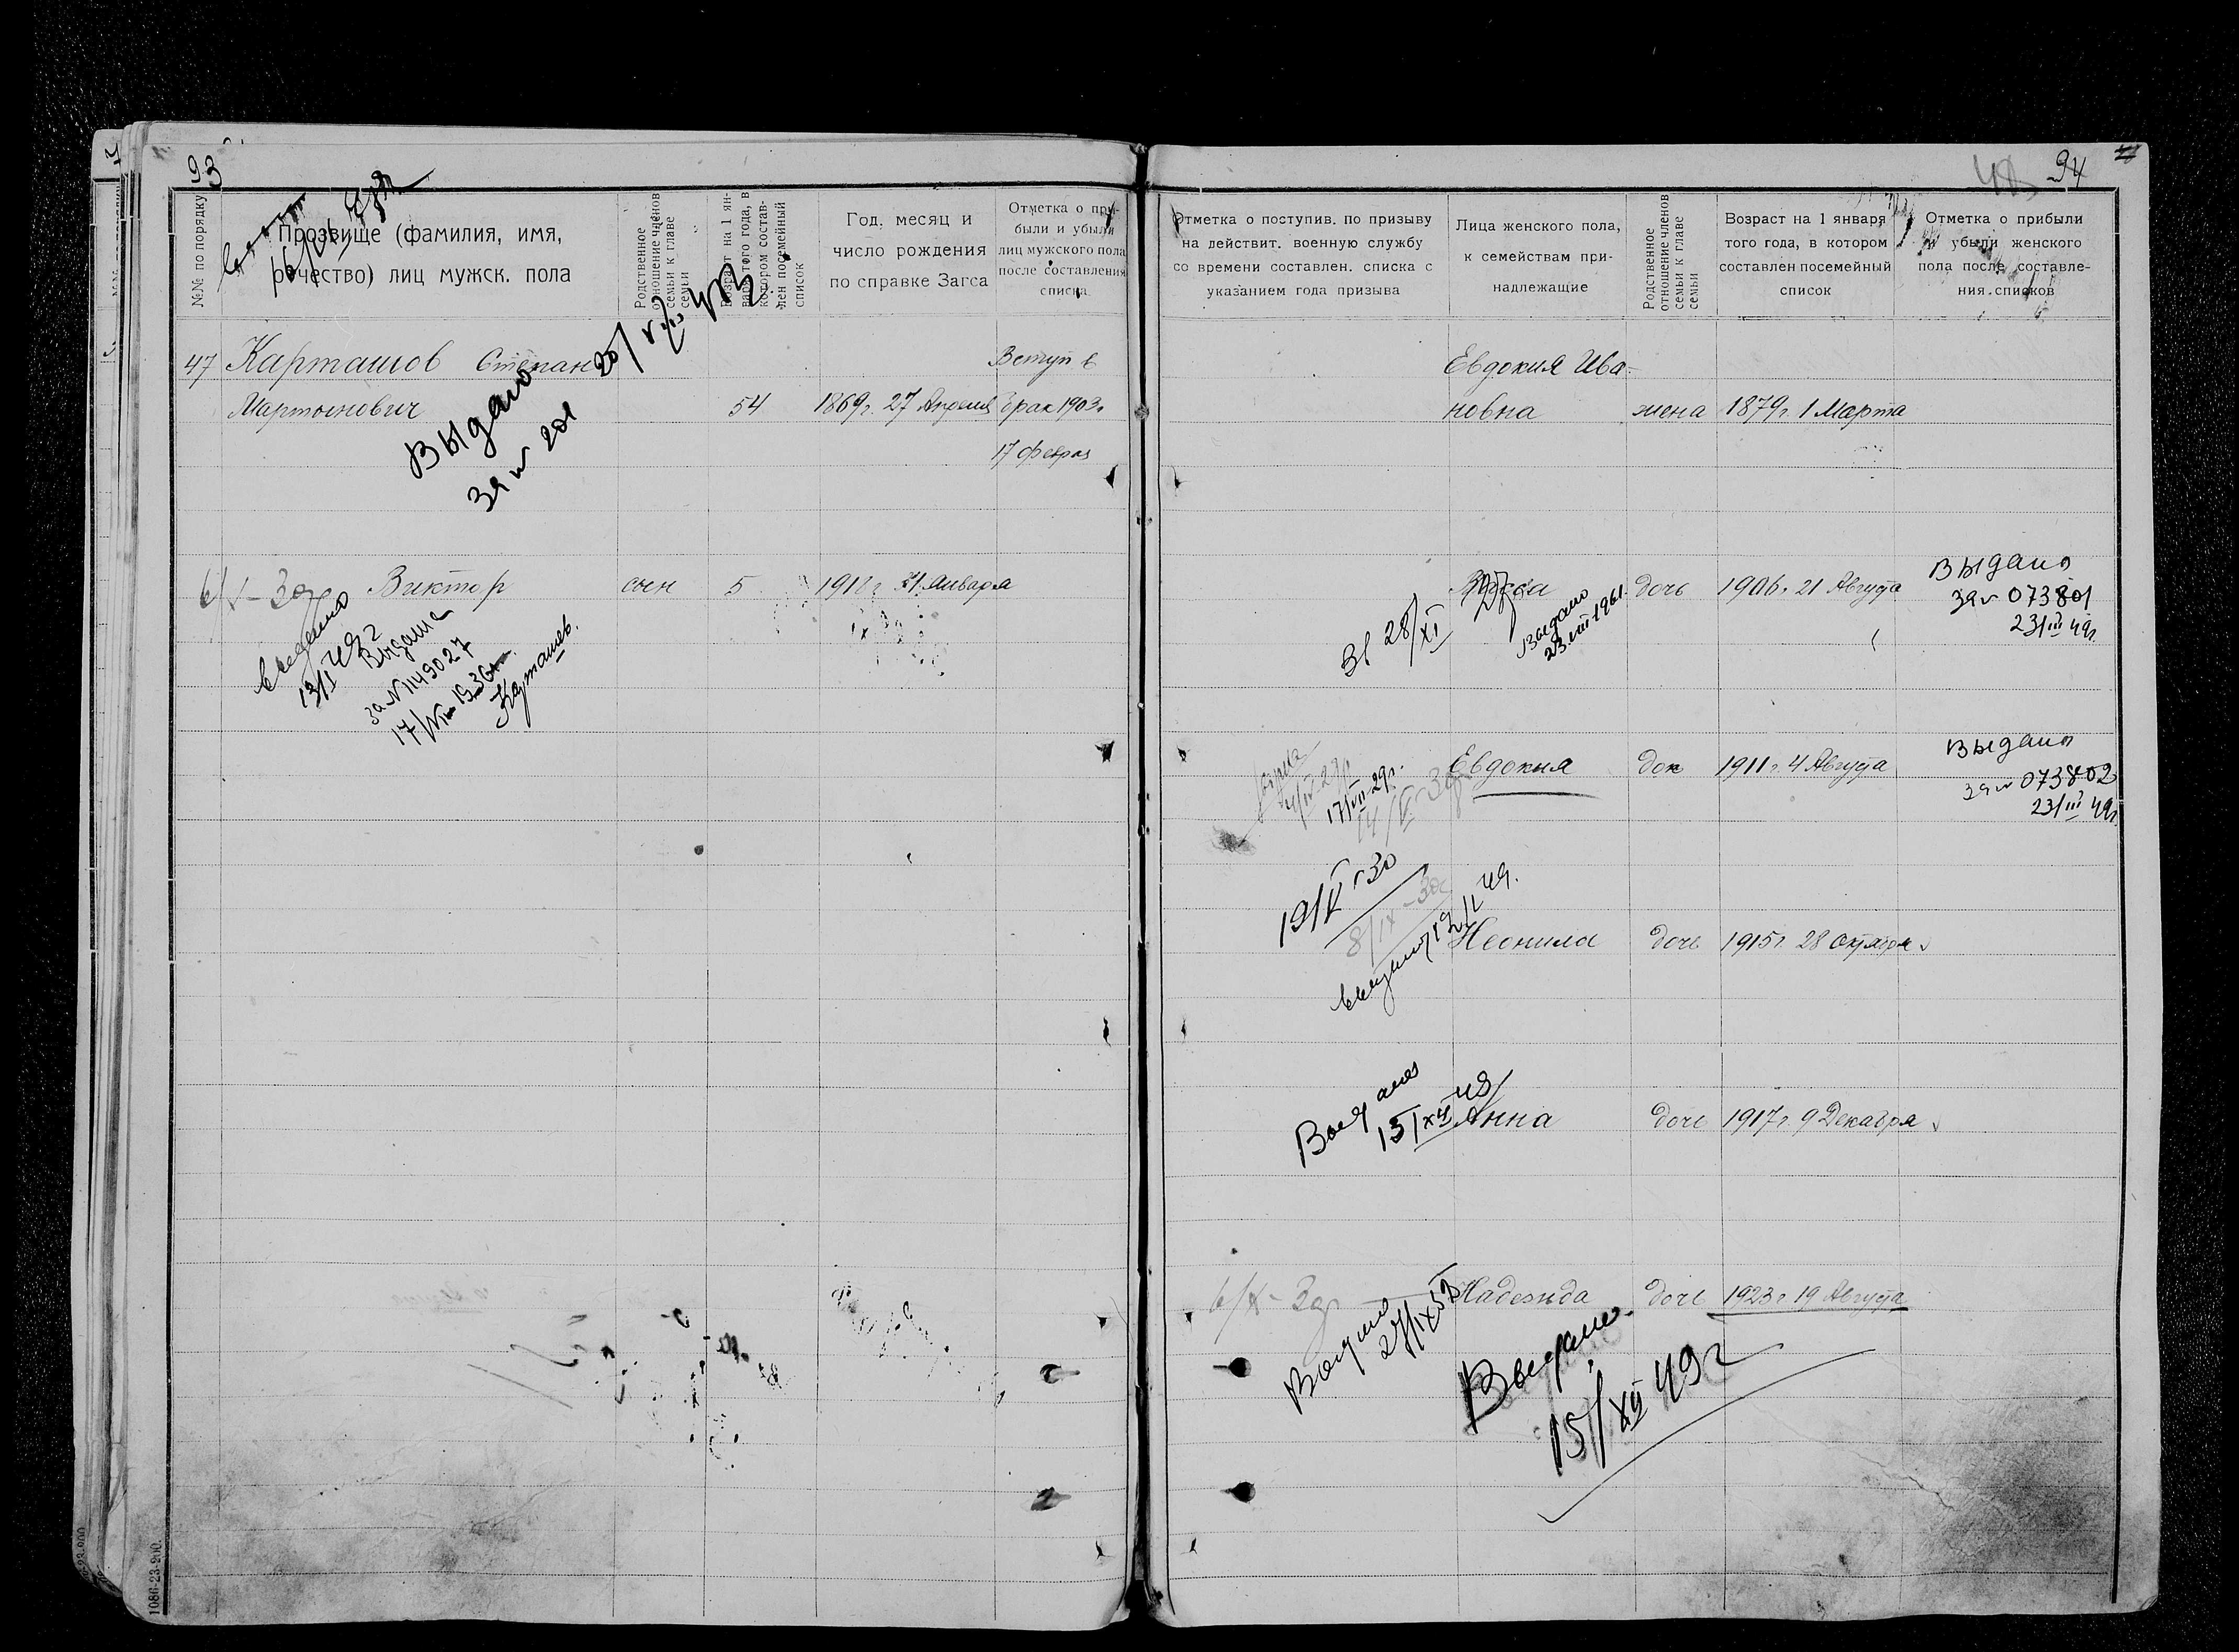 93
№№ по порядку
Прозвище (фамилия, имя,
отчество) лиц мужск. пола
Родственное
отношение членов
семьи к главе
семьи
Возраст на 1 ян-
варя того года, в
котором состав-
лен посемейный
список
Год, месяц и
число рождения
по справке Загса
Отметка о при-
были и убыли
лиц мужского пола
после составления
списка
47 Карташов Степан
Вступ в
Мартынович 54 1869г. 27 Апреля брак 1903г
17 феврал
Выдано
за № 201
Виктор сын 5 1918г 31 Января
выдано
13/I 49г
Выдана
за № 1149027
17/VI 1936г.
Карташев.
1086-23-900.
94
Отметка о поступив. по призыву
на действит. военную службу
со времени составлен. списка с
указанием года призыва
Лица женского пола,
к семействам при-
надлежащие
Родственное
отношение членов
семьи к главе
семьи
Возраст на 1 января
того года, в котором
составлен посемейный
список
Отметка о прибыли
и убыли женского
пола после составле-
ния списков
Евдокия Ива-
новна жена 1879г. 1 Марта
дочь 1906г. 21 Августа
Выдано
за № 073801
23/III 49г.
28/XI
Выдано
23.VIII-1961.
Евдокия доч 1911г. 4 Августа
Выдано
за № 073802
23/III 49г.
17/VII 29г.
14/V-30
19/V 30
8/IX-30г
выдано 13/I 49.
Неонила дочь 1915г. 28 Октября
Выдано
15/XII 49
Анна дочь 1917г. 9 Декабря
Надежда дочь 1923г. 19 Августа
Выдано
Выдано
15/XII 49г